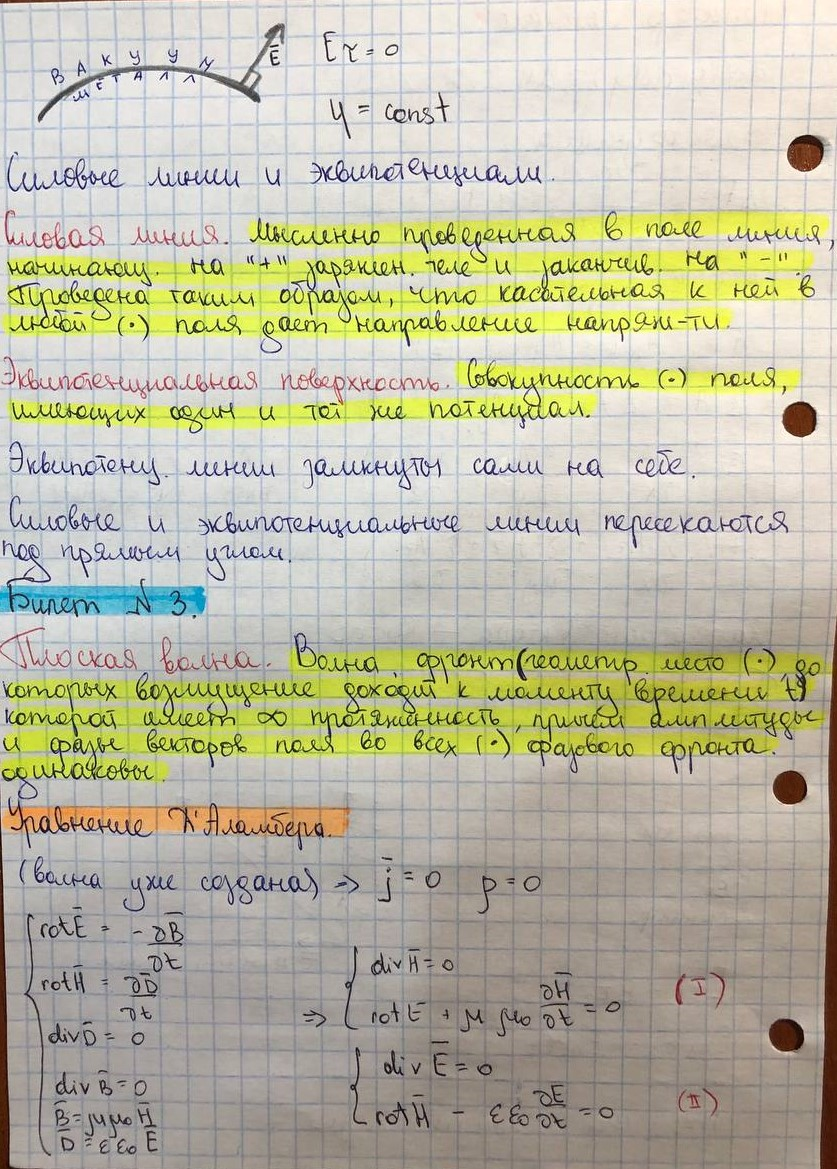 Ē
Eτ = 0
ВАКУУМ
МЕТАЛЛ
φ = const
Силовые линии и эквипотенциали.
Силовая линия. Мысленно проведенная в поле линия,
начинающ. на "+" заряжен. теле и заканчив. на "-".
Проведена таким образом, что касательная к ней в
любой (·) поля дает направление напряж-ти.
Эквипотенциальная поверхность. Совокупность (·) поля,
имеющих один и тот же потенциал.
Эквипотенц. линии замкнуты сами на себе.
Силовые и эквипотенциальные линии пересекаются
под прямым углом.
Билет N 3.
Плоская волна. Волна, фронт (геометр. место (·), до
которых возмущение доходит к моменту времени t)
которой имеет ∞ протяженность, причем амплитуды
и фазы векторов поля во всех (·) фазового фронта.
одинаковы.
Уравнение Д'Аламбера.
(волна уже создана) => j̄ = 0 ρ = 0
rot Ē = - ∂B̄/∂t
rot H̄ = ∂D̄/∂t
div D̄ = 0
div B̄ = 0
B̄ = μμ₀ H̄
D̄ = εε₀ Ē
=>
div H̄ = 0
rot Ē + μμ₀ ∂H̄/∂t = 0 (I)
div Ē = 0
rot H̄ - εε₀ ∂Ē/∂t = 0 (II)